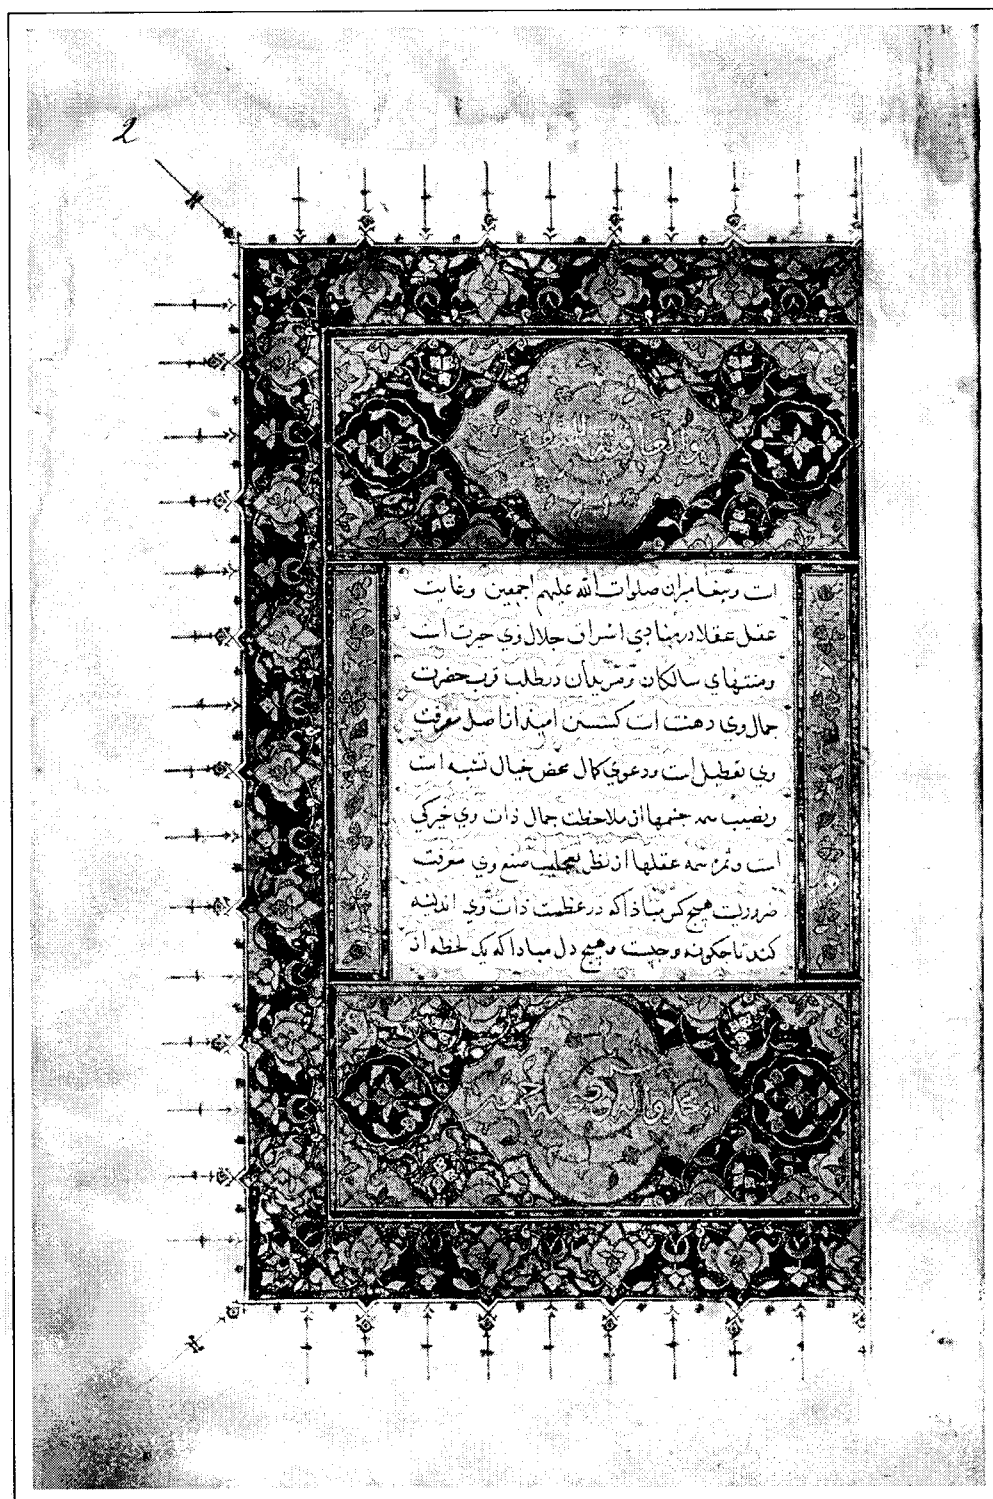 2
والعاقبة للمتقین
است و پیغامبران صلوات الله علیهم اجمعین وغایت
عقل عقلا در مبادی اشراق جلال وی حیرت است
ومنتهای سالکان و مریدان در طلب قرب حضرت
جمال وی دهشت است کسستن امید از اصل معرفت
وی تعطیل است ودعوی کمال محض خیال تشبیه است
ونصیب همه چشمها از ملاحظت جمال ذات وی خیرکی
است وثمره همه عقلها از نظر بعجایب صنع وی معرفت
ضروریت هیچ کس مباذا که در عظمت ذات وی اندیشه
کند تا چکونه و چیست و هیچ دل مبادا که یک لحظه از
محمد و آله